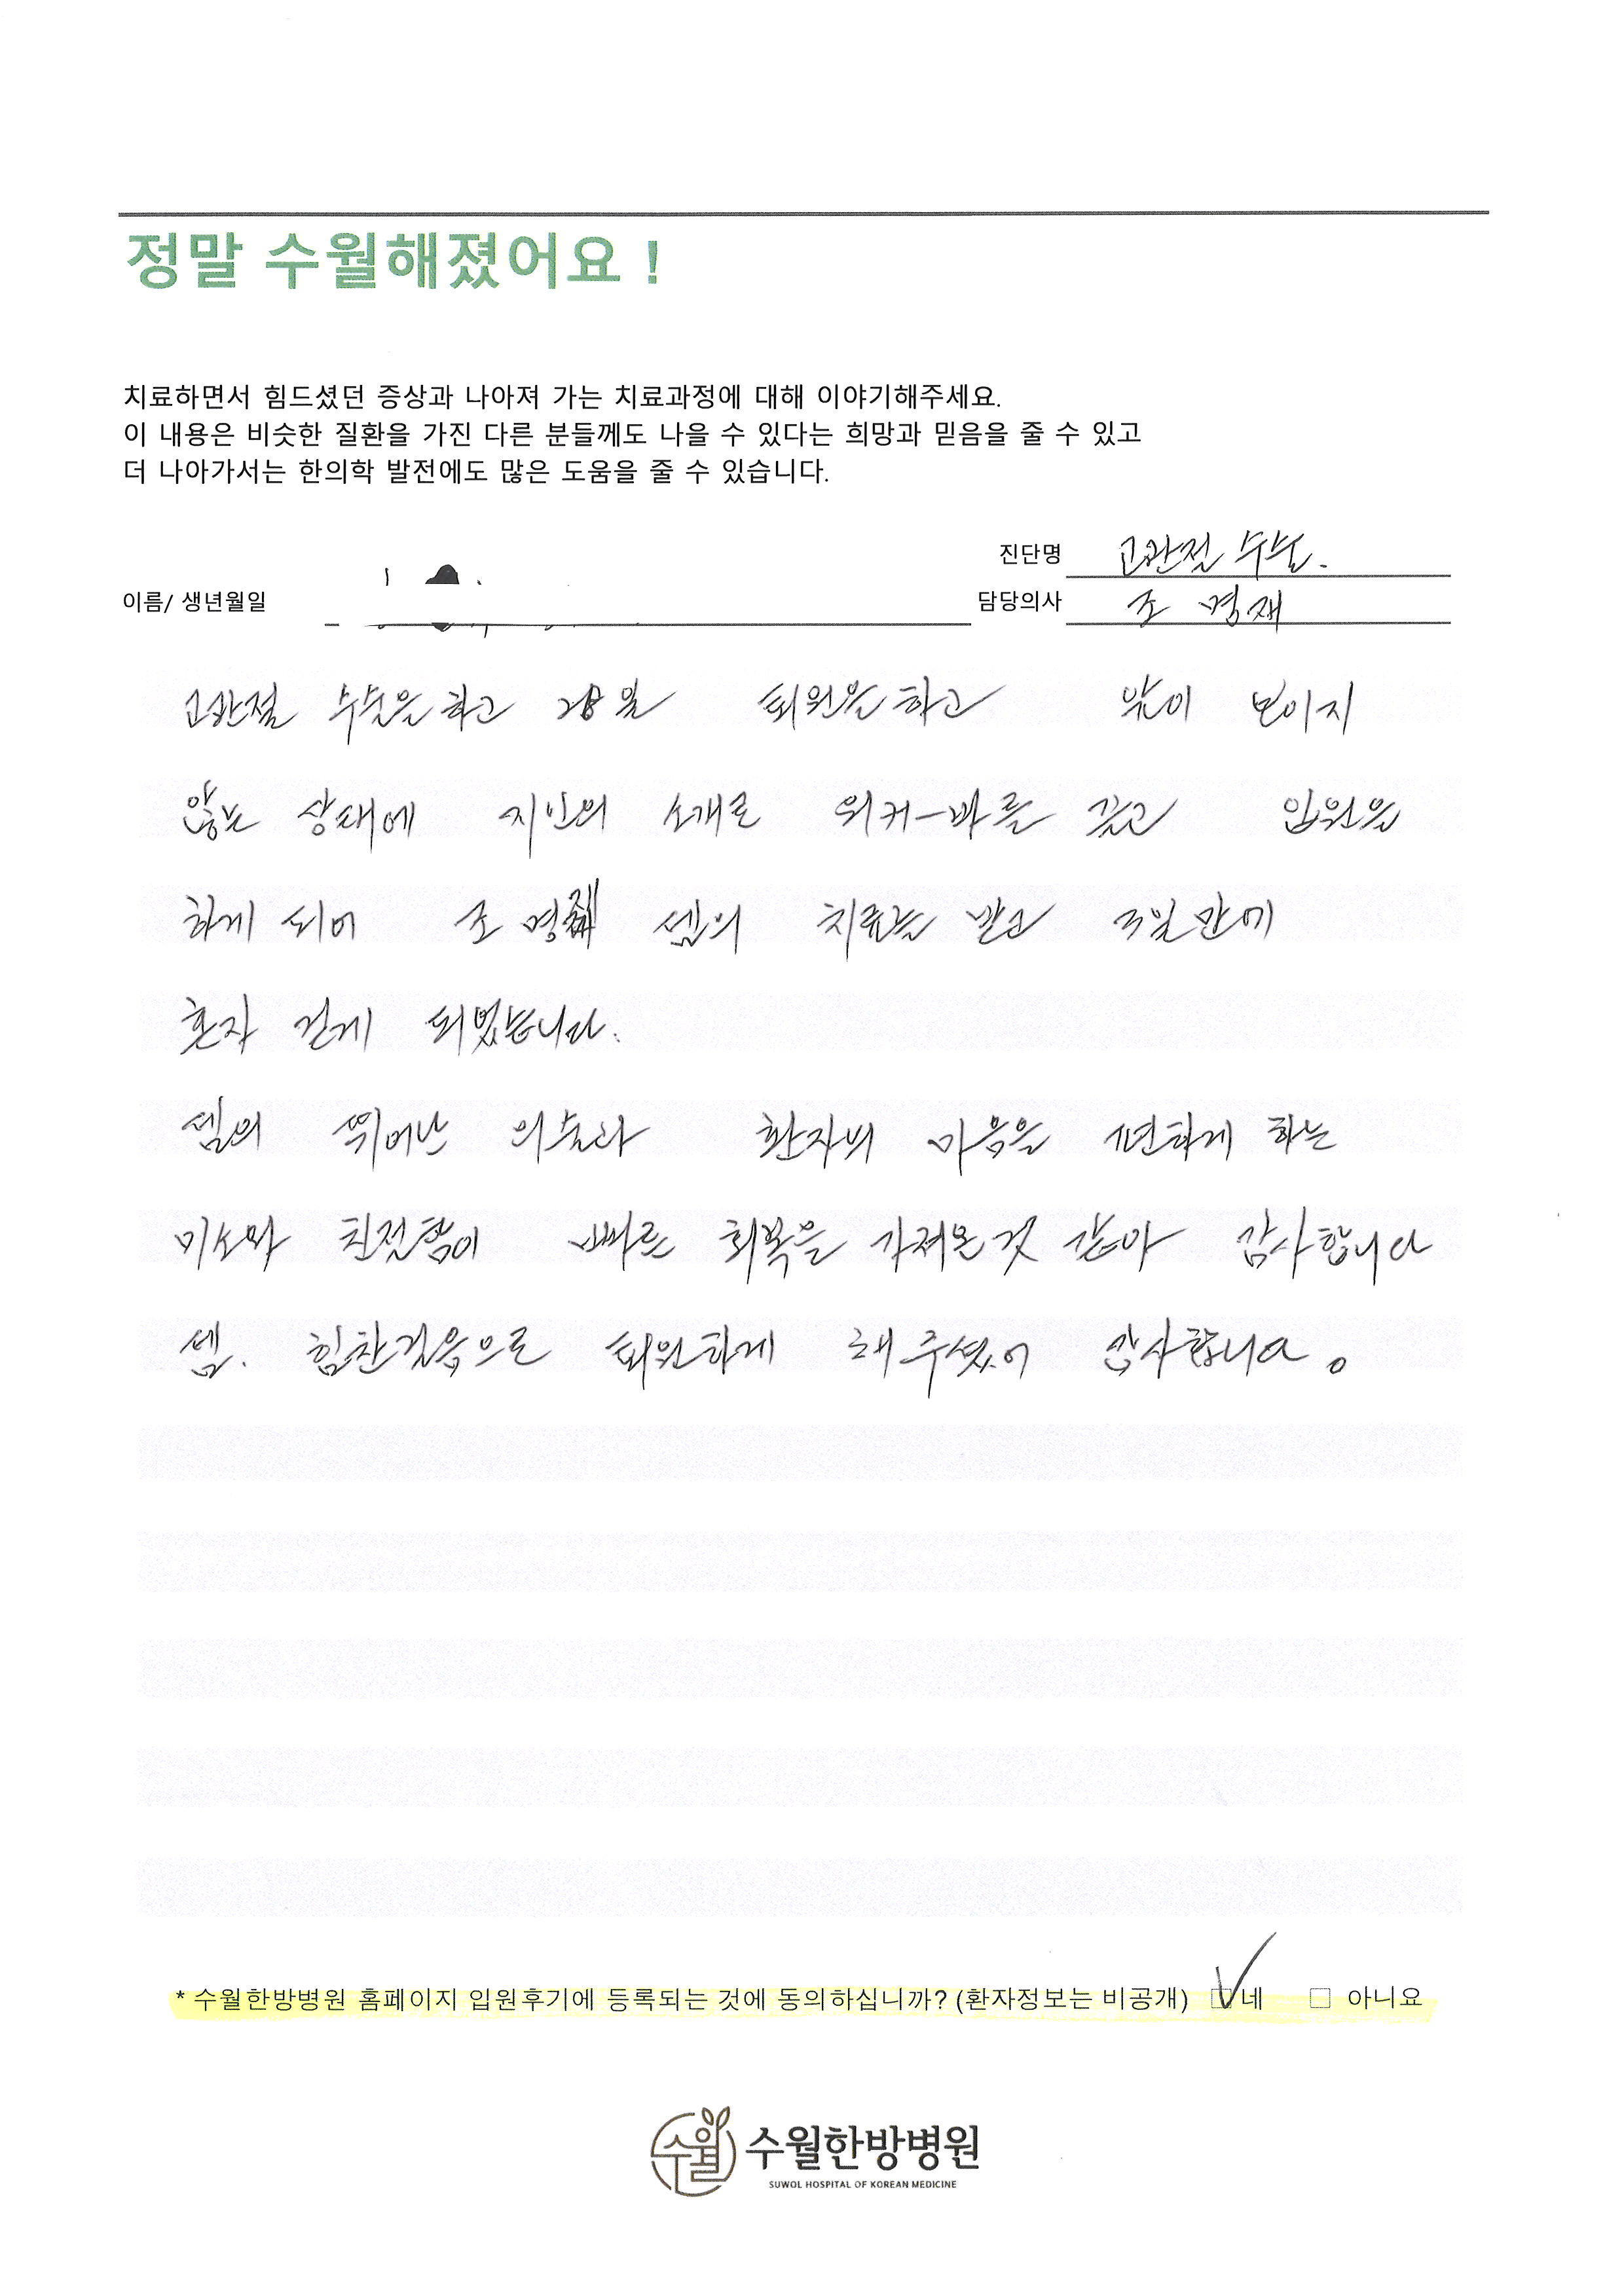 정말 수월해졌어요 !
치료하면서 힘드셨던 증상과 나아져 가는 치료과정에 대해 이야기해주세요.
이 내용은 비슷한 질환을 가진 다른 분들께도 나을 수 있다는 희망과 믿음을 줄 수 있고
더 나아가서는 한의학 발전에도 많은 도움을 줄 수 있습니다.
진단명 고관절 수술.
이름/ 생년월일 담당의사 조 명재
고관절 수술을 하고 28일 퇴원을 하고 앞이 보이지
않는 상태에 지인의 소개로 워커-바를 끌고 입원을
하게 되어 조 명재 쎔의 치료를 받고 3일만에
혼자 걷게 되었습니다.
쎔의 뛰어난 의술과 환자의 마음을 편하게 하는
미소와 친절함이 빠른 회복을 가져온것 같아 감사합니다
쎔. 힘찬걸음으로 퇴원하게 해주셨어 감사합니다.
* 수월한방병원 홈페이지 입원후기에 등록되는 것에 동의하십니까? (환자정보는 비공개) 네 아니요
수월 수월한방병원
SUWOL HOSPITAL OF KOREAN MEDICINE